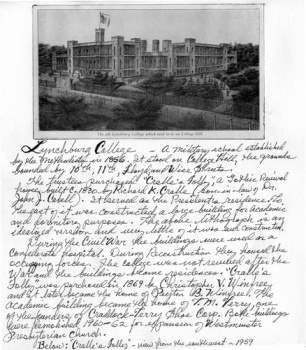 The old Lynchburg College which stood on College Hill
Lynchburg College - A military school established
by the Methodists in 1856. It stood on College Hill, the grounds
bounded by 10th, 11th, Floyd and Wise Streets.
The trustees purchased "Cralle's Folly," a Gothic Revival
house built c.1830 by Richard K. Cralle (son-in-law of Dr.
John J. Cabell). It served as the President's residence. To
the east of it was constructed a large building for academic
and dormitory purposes. The above lithograph is an
idealized version and very little of it was ever constructed.
During the Civil War the buildings were used as a
Confederate hospital. During Reconstruction they housed the
occupying forces. The college was not reopened after the
War and the buildings became residences. "Cralle's
Folly" was purchased in 1869 by Christopher V. Winfree
and it later became the home of Peyton B. Winfree. The
academic building became the home of T.M. Terry, one
of the founders of Craddock-Terry Shoe Corp. Both buildings
were demolished 1960-62 for expansion of Westminster
Presbyterian Church.
Below: "Cralle's Folly" - view from the southwest - 1959